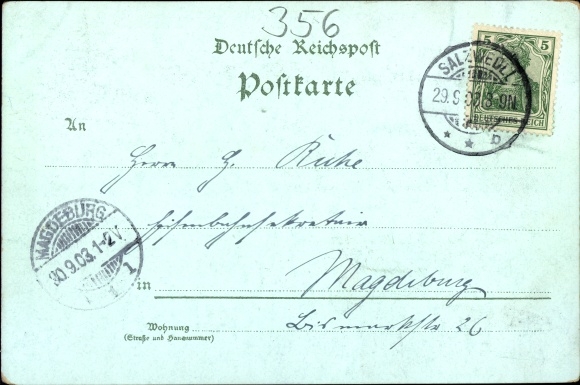 356
Deutsche Reichspost
Postkarte
5 5
DEUTSCHES REICH
SALZWEDEL
29.9.03.8-9N
* * b
An
Herrn H. Ruhe
Eisenbahnsekretair
MAGDEBURG
30.9.03.1-2V.
* 1
in Magdeburg
Bismarckstr 26
Wohnung
(Straße und Hausnummer)